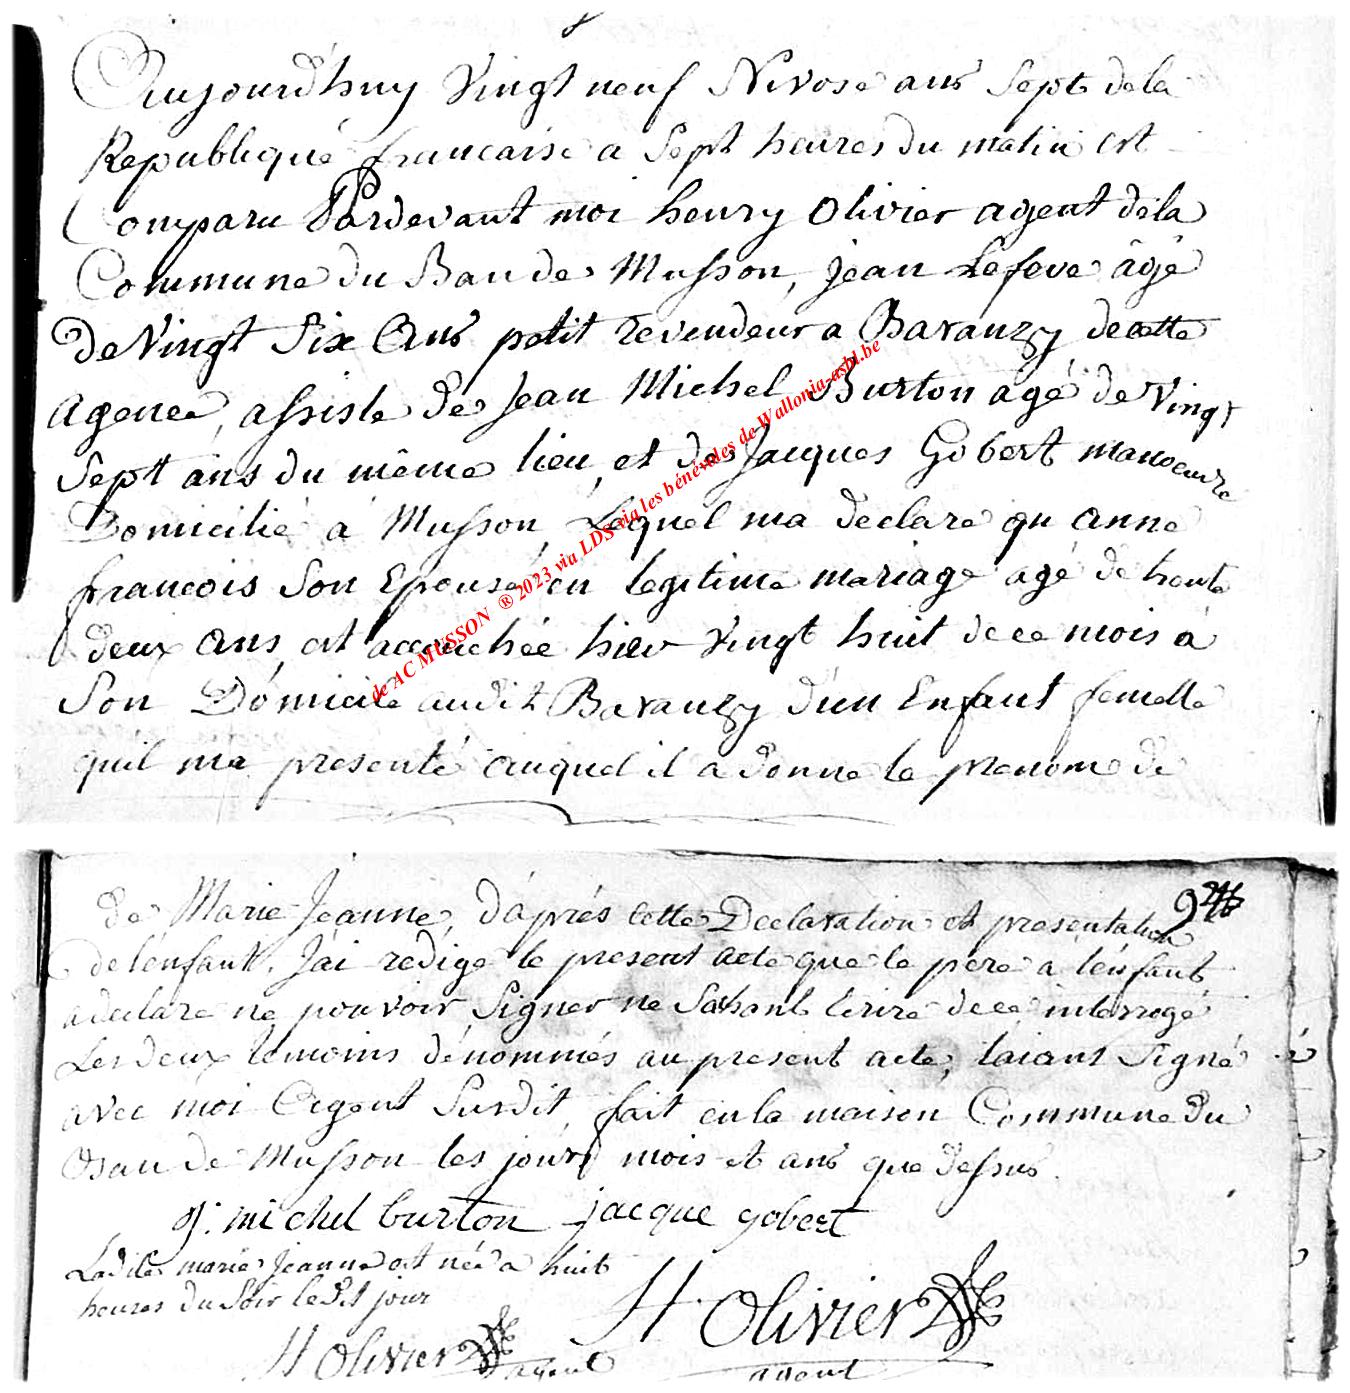 Aujourd'huy Vingt neuf Nivose ans Sept de la
Republique francaise a Sept heures du matin est
Comparu Pardevant moi henry Olivier agent de la
Commune du Ban de Musson, jean Lefeve âgé
de Vingt Six Ans petit revendeur a Baranzy de cette
agence, assiste de jean Michel Burton agé de Vingt
Sept ans du même lieu, et de Jacques Gobert manoeuvre
Domicilié à Musson, Lequel ma declare qu anne
francois Son Epouse en legitime mariage agé de trente
deux ans, est accouchée hier Vingt huit de ce mois à
Son Domicile audit Baranzy d'un Enfant femelle
quil ma presenté auquel il a donne le prenom de
de Marie Jeanne, d'après cette Declaration et presentation
de l'enfant. J'ai redigé le present acte que le pere a l'enfant
a declaré ne pouvoir Signer ne Sachant Ecrire de ce interrogé
Les deux temoins dénommés au present acte, laiant Signé
avec moi Agent Susdit, fait en la maison Commune du
Ban de Musson les jour mois et ans que dessus.
j: michel burton jacque gobert
Ladite marie Jeanne est née a huit
heures du Soir ledit jour
H Olivier
agent
H Olivier
agent
de AC MUSSON ® 2023 via LDS via les bénévoles de Wallonia-asbl.be